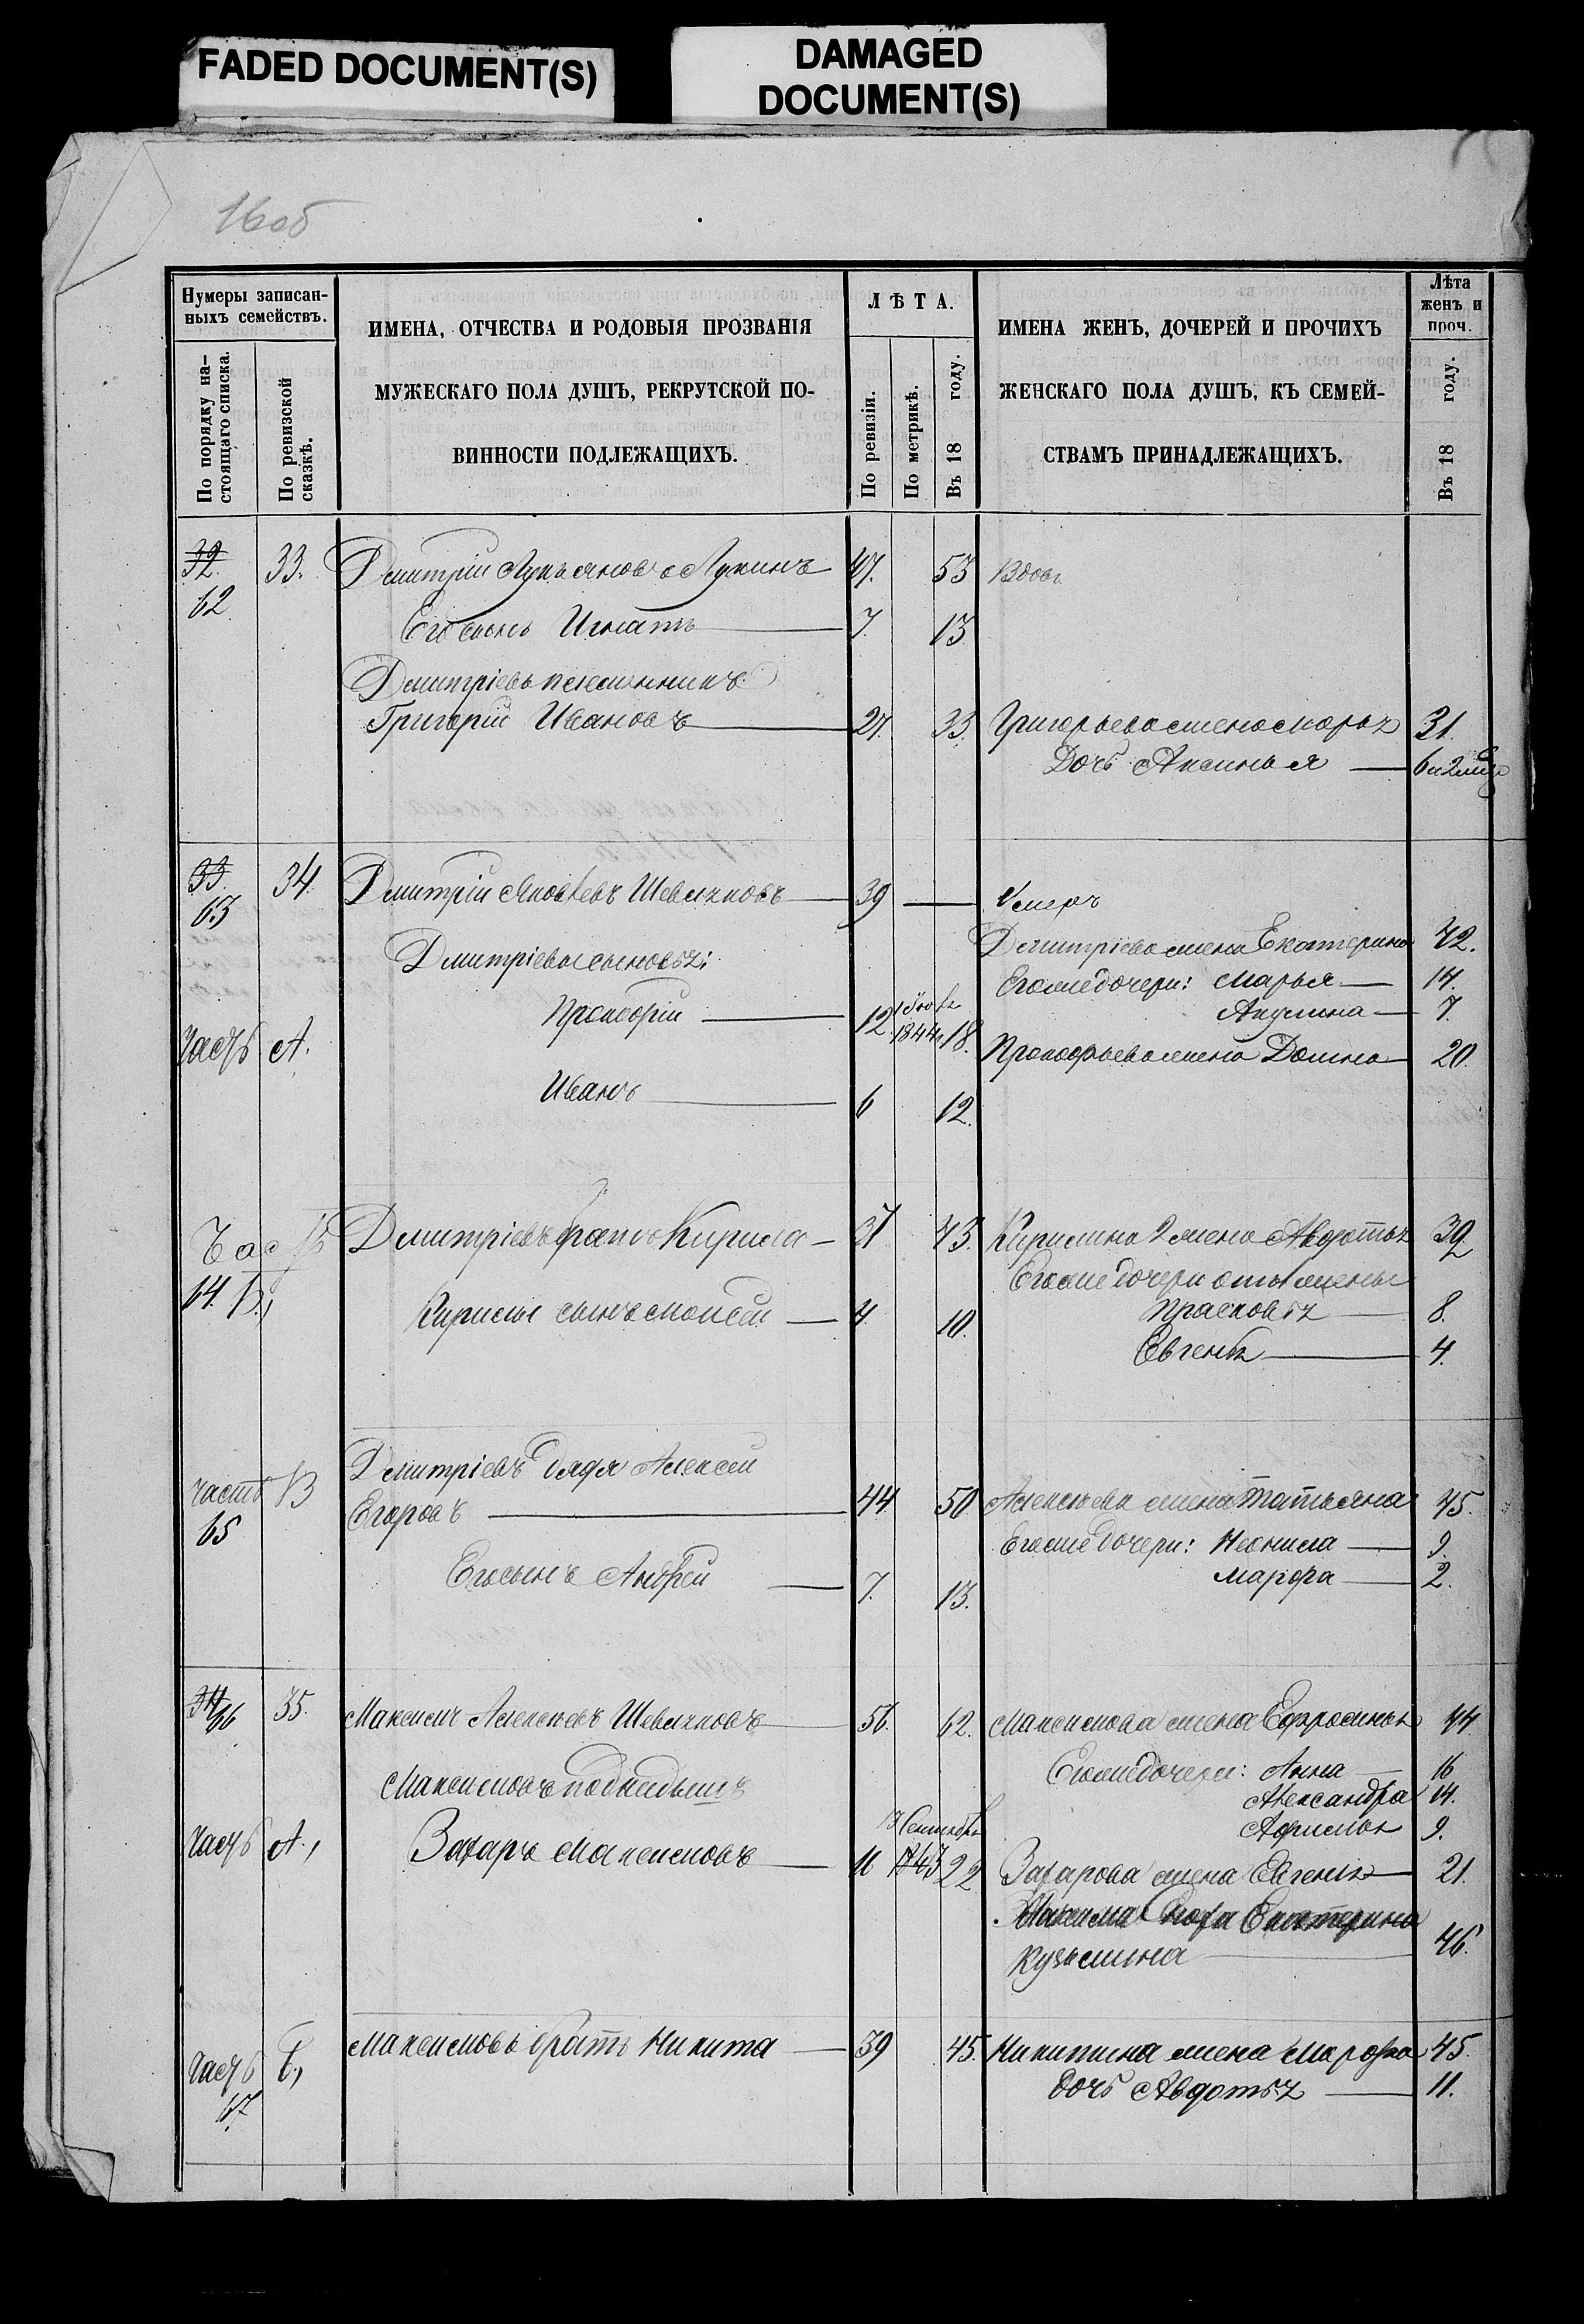 FADED DOCUMENT(S)
DAMAGED
DOCUMENT(S)
16об
Нумеры записан-
ныхъ семействъ.
По порядку на-
стоящаго списка.
По ревизской
сказкѣ.
ИМЕНА, ОТЧЕСТВА И РОДОВЫЯ ПРОЗВАНІЯ
МУЖЕСКАГО ПОЛА ДУШЪ, РЕКРУТСКОЙ ПО-
ВИННОСТИ ПОДЛЕЖАЩИХЪ.
ЛѢТА.
По ревизіи.
По метрикѣ.
Въ 18 году.
ИМЕНА ЖЕНЪ, ДОЧЕРЕЙ И ПРОЧИХЪ
ЖЕНСКАГО ПОЛА ДУШЪ, КЪ СЕМЕЙ-
СТВАМЪ ПРИНАДЛЕЖАЩИХЪ.
Лѣта
женъ и
проч.
Въ 18 году.
32. 33. Дмитрій Лукьяновъ Лукинъ 47. 53 Вдовъ
62
Его сынъ Игнатъ 7. 13
Дмитріевъ племянникъ
Григорій Ивановъ 27. 33. Григорьева жена Марья 31.
Дочь Аксинья 6 и 2 мѣс
33. 34. Дмитрій Яковлевъ Шевляковъ 39 Умеръ
63
Дмитріева жена Екатерина 42.
Дмитріевы сыновья:
Его же дочери: Марья 14.
Акулина 7.
Прокофій 12 1 Іюля 1844 18.
Часть А.
Прокофьева жена Домна 20.
Иванъ 6 12.
Часть Б Дмитріевъ братъ Кирила 37 43. Кирилина 2 жена Авдотья 39
64.
Его же дочери отъ 1 жены
Кирилы сынъ Моисей 4. 10. Прасковья 8.
Евгенія 4.
Дмитріевъ дядя Алексей
Часть В
65
Егоровъ 44 50 Алексѣева жена Татьяна 45.
Его же дочери: Неонила 9.
Его сынъ Андрей 7. 13. Марфа 2.
34 66 35. Максимъ Алексѣевъ Шевляковъ 56. 62. Максимова жена Ефросинья 44
Его же дочери: Анна 16
Максимовъ подкидышъ
Александра 14.
Афимья 9.
Часть А., Захаръ Максимовъ 16 Сентября 22 Захарова жена Евгенія 21.
Максима сноха Екатерина
Кузьмина 46.
Часть Б, Максимовъ братъ Никита 39 45. Никитина жена Марфа 45.
67.
дочь Авдотья 11.